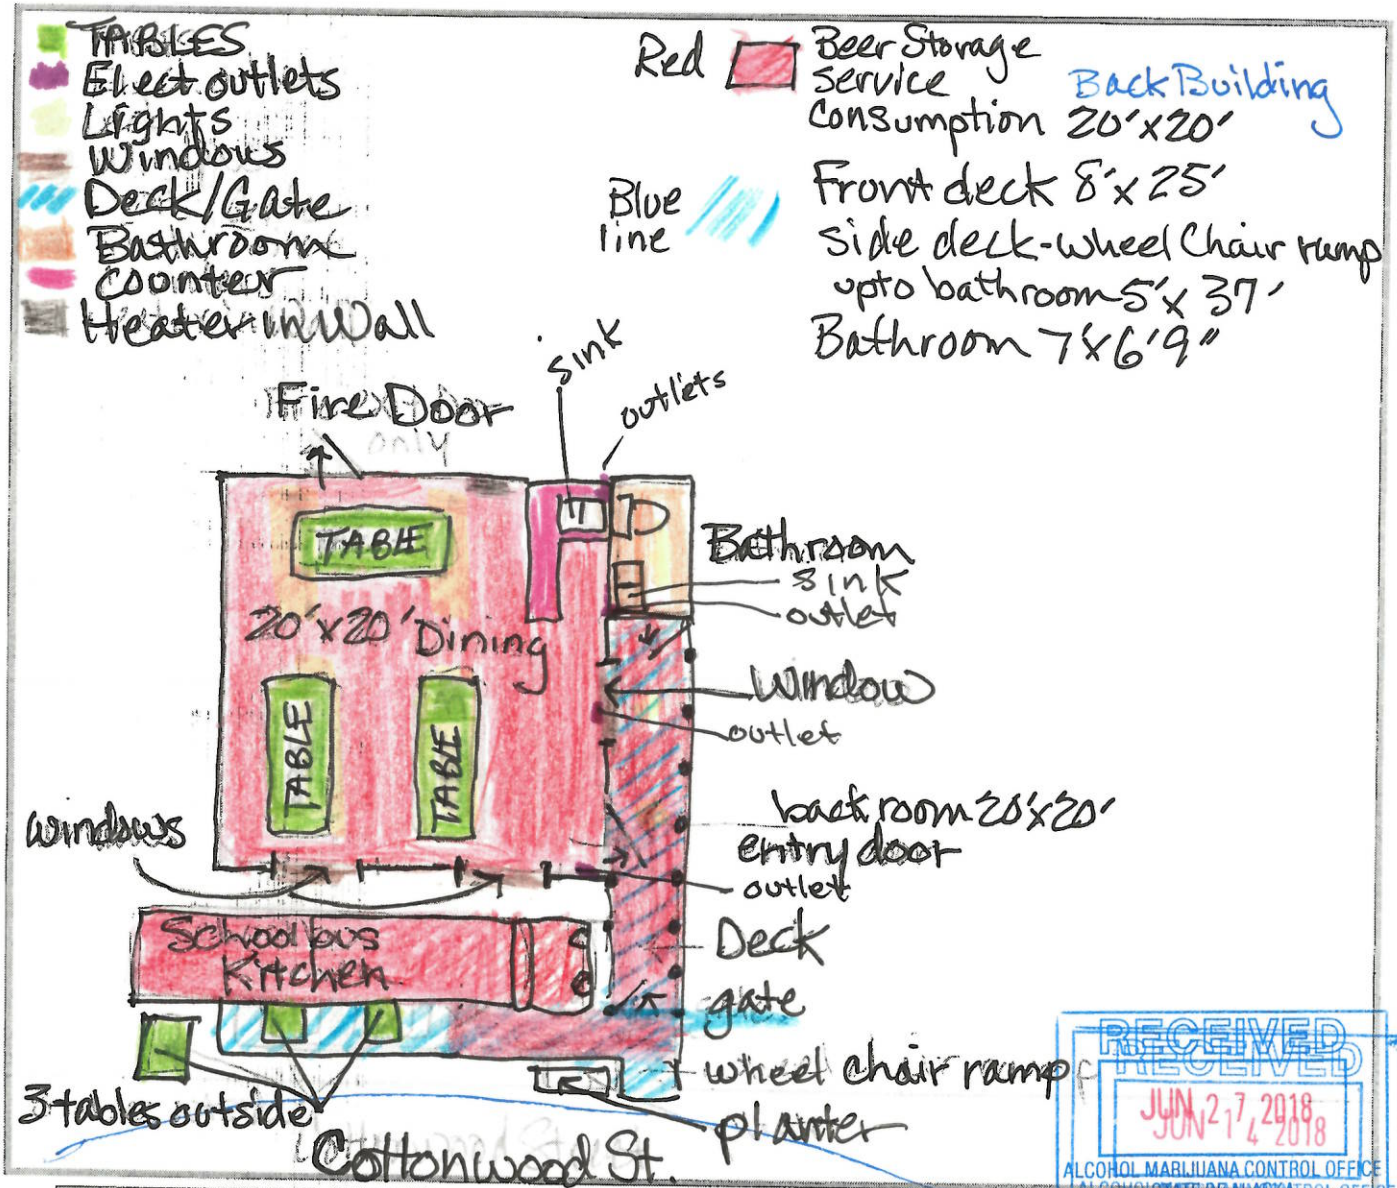 TABLES
Elect outlets
Lights
Windows
Deck/Gate
Bathroom
Counter
Heater in Wall
Red
Beer Storage
Service
Consumption 20'x20'
Back Building
Blue
line
Front deck 8'x25'
Side deck-wheel Chair ramp
upto bathroom 5'x37'
Bathroom 7'x6'9"
Fire Door
only
sink
outlets
TABLE
20'x20' Dining
TABLE
TABLE
Bathroom
sink
outlet
Window
outlet
windows
back room 20'x20'
entry door
outlet
School bus
Kitchen
Deck
gate
wheel chair ramp
planter
3 tables outside
Cottonwood St.
RECEIVED
RECEIVED
JUN 27 2018
JUN 14 2018
ALCOHOL MARIJUANA CONTROL OFFICE